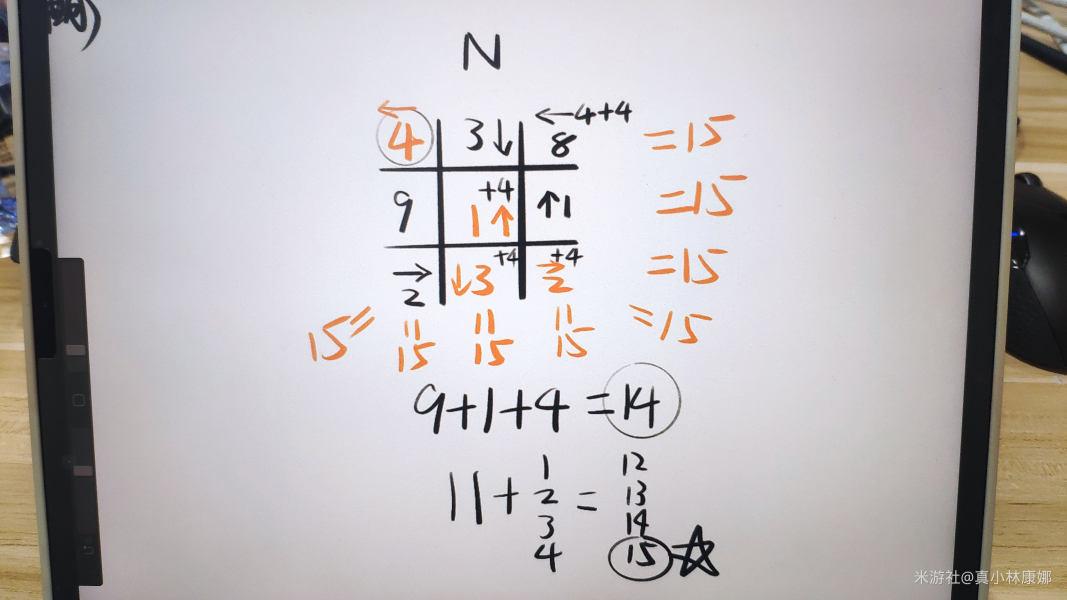 N
4 3↓ ←4+4
8 =15
9 +4
1↑ ↑1 =15
→
2 ↓3+4 +4
→
2 =15
15= =15 =15 =15 =15
9+1+4=14
11+1
2
3
4 = 12
13
14
15☆
米游社@真小林康娜